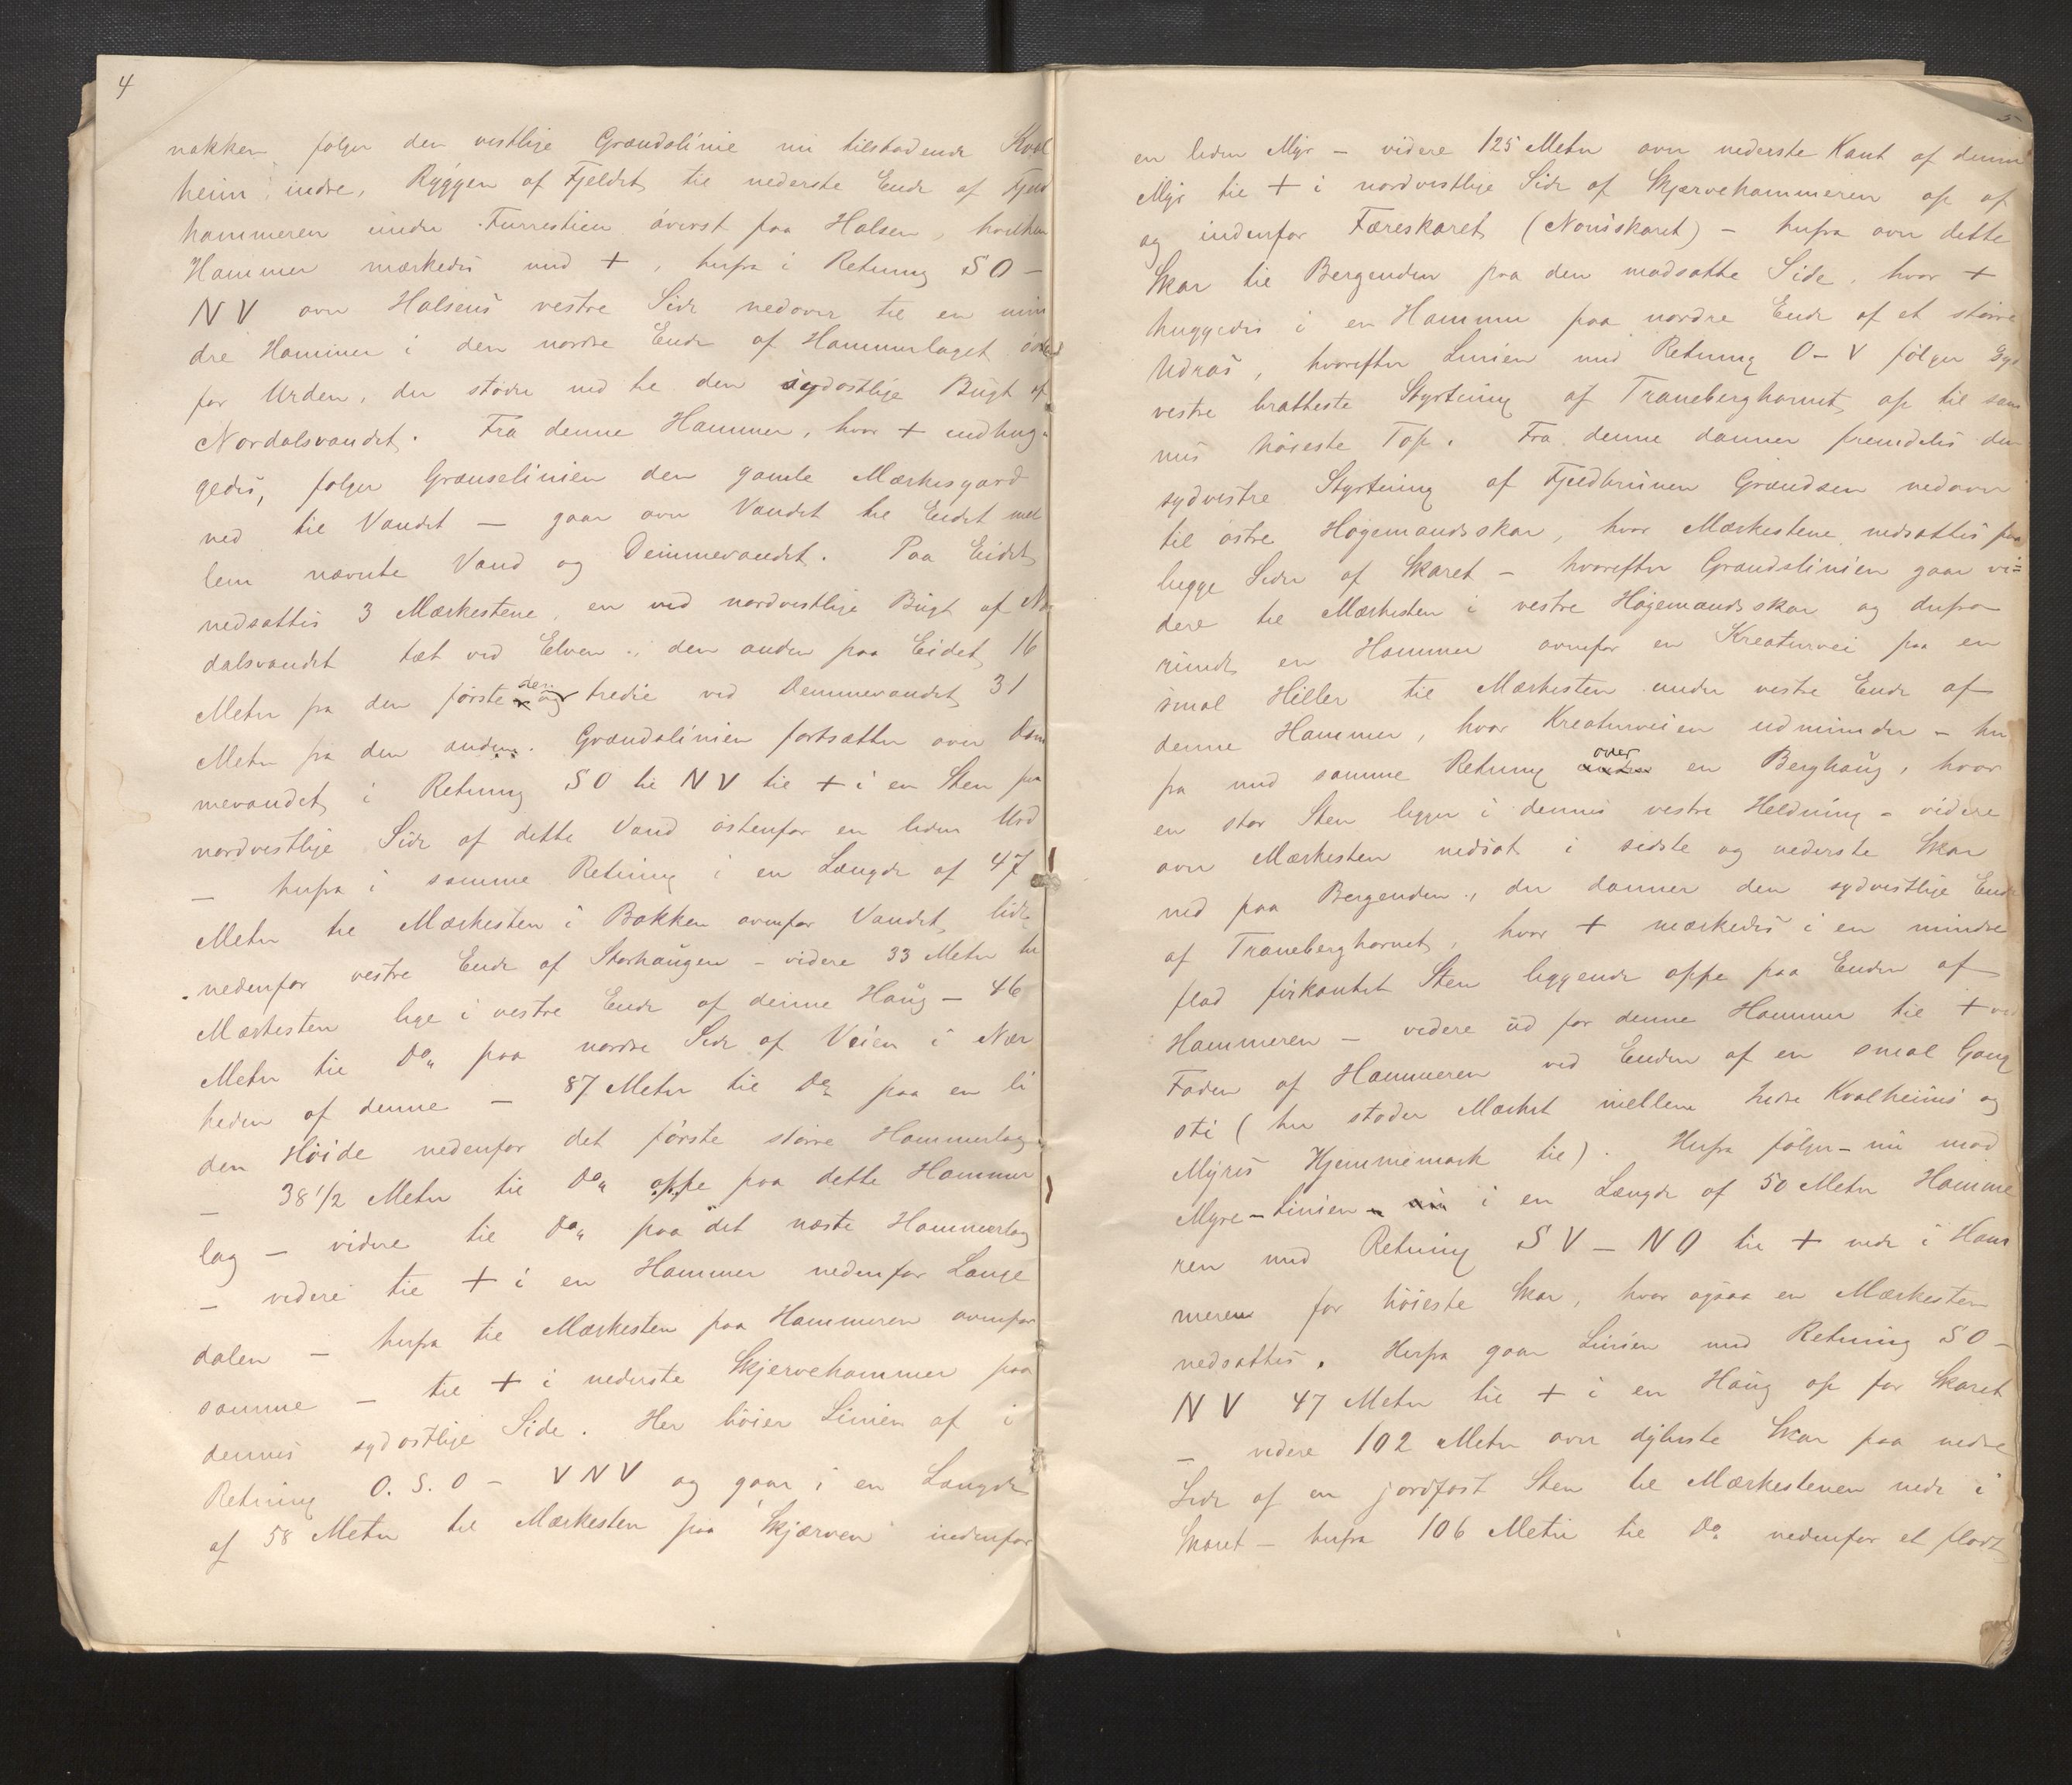 4
nakken følger den vestlige Grændselinie nu tilstødende Kval
heim indre, Ryggen af Fjeldet til nederste Ende af
hammeren under Furrestien øverst paa Halsen, hvilken
Hammer mærkedes med +, herfra i Retning SO –
NV over Halsens vestre Side nedover til en min
dre Hammer i den nordre Ende af Hammerlaget
for Urden, der støder ned til den sydostlige Bugt af
Nordalsvandet. Fra denne Hammer, hvor + indhug-
gedes, følger Grænselinien den gamle Mærkesgard
ned til Vandet – gaar over Vandet til Eidet mel
lem nævnte Vand og Demmevandet. Paa Eidet
nedsattes 3 Mærkestene, en ved nordvestlige Bugt af No
dalsvandet tæt ved Elven, den anden paa Eidet 16
Meter fra den første og den tredie ved Demmevandet 31
Meter fra den anden. Grændselinien fortsætter over Dem
mevandet i Retning SO til NV til + i en Sten paa
nordvestlige Side af dette Vand østenfor en liden Urd
– herfra i samme Retning i en Længde af 47
Meter til Mærkesten i Bakken ovenfor Vandet, lidt
nedenfor vestre Ende af Storhaugen – videre 33 Meter til
Mærkesten lige i vestre Ende af denne Haug – 46
Meter til Do. paa nordre Side af Veien i Nær
heden af denne – 87 Meter til Do. paa en li
den Høide nedenfor det første større Hammerlag
– 38 1/2 Meter til Do. oppe paa dette Hammer
lag – videre til Do. paa det næste Hammerlag
– videre til + i en Hammer nedenfor Lange
dalen – herfra til Mærkesten paa Hammeren ovenfor
samme – til + i nederste Skjervehammer paa
dennes sydostlige Side. Her bøier Linien af i
Retning O.S.O – VNV og gaar i en Længde
af 58 Meter til Mærkesten paa Skjærven indenfor
5
en liden Myr – videre 125 Meter over nederste Kant af denne
Myr til + i nordvestlige Side af Skjærvehammeren op af
og indenfor Færeskaret (Noniskaret) – herfra over dette
Skar til Bergenden paa den modsatte Side, hvor +
huggedes i en Hammer paa nordre Ende af et større
Udras, hvorefter Linien med Retning O – V følger Syd
vestre bratteste Styrtning af Traneberghornet op til sam
mes høieste Top. Fra denne danner fremdeles den
sydvestre Styrtning af Fjeldbrunen Grændsen nedover
til østre Høgemandsskar, hvor Mærkestene nedsattes paa
begge Sider af Skaret – hvorefter Grændslinien gaar vi=
dere til Mærkesten i vestre Høgemandsskar og derfra
rundt en Hammer ovenfor en Kreaturvei paa en
smal Hiller til Mærkesten under vestre Ende af
denne Hammer, hvor Kreaturveien udmunder – her
fra med samme Retning over en Berghaug, hvor
en stor Sten ligger i dennes vestre Heldning – videre
over Mærkesten nedsat i sidste og nederste Skar
ned paa Bergenden, der danner den sydvestlige Ende
af Traneberghornet, hvor + mærkedes i en mindre
flad firkantet Sten liggende oppe paa Enden af
Hammeren – videre ud for denne Hammer til + ved
Foden af Hammeren ved Enden af en smal Gang
sti (her støder Mærket mellem Indre Kvalheims og
Myres Hjemmemark til). Herfra følger – nu mod
Myre – Linien – nu i en Længde af 50 Meter Hamme
ren med Retning SV – NO til + nede i Ham
meren for høieste Skar, hvor ogsaa en Mærkesten
nedsattes. Herfra gaar Linien med Retning SO –
NV 47 Meter til + i en Haug op for Skaret
– videre 102 Meter over dybeste Skar paa nedre
Side af en jordfast Sten til Mærkestenen nede i
Skaret – herfra 106 Meter til Do. nedenfor et fladt